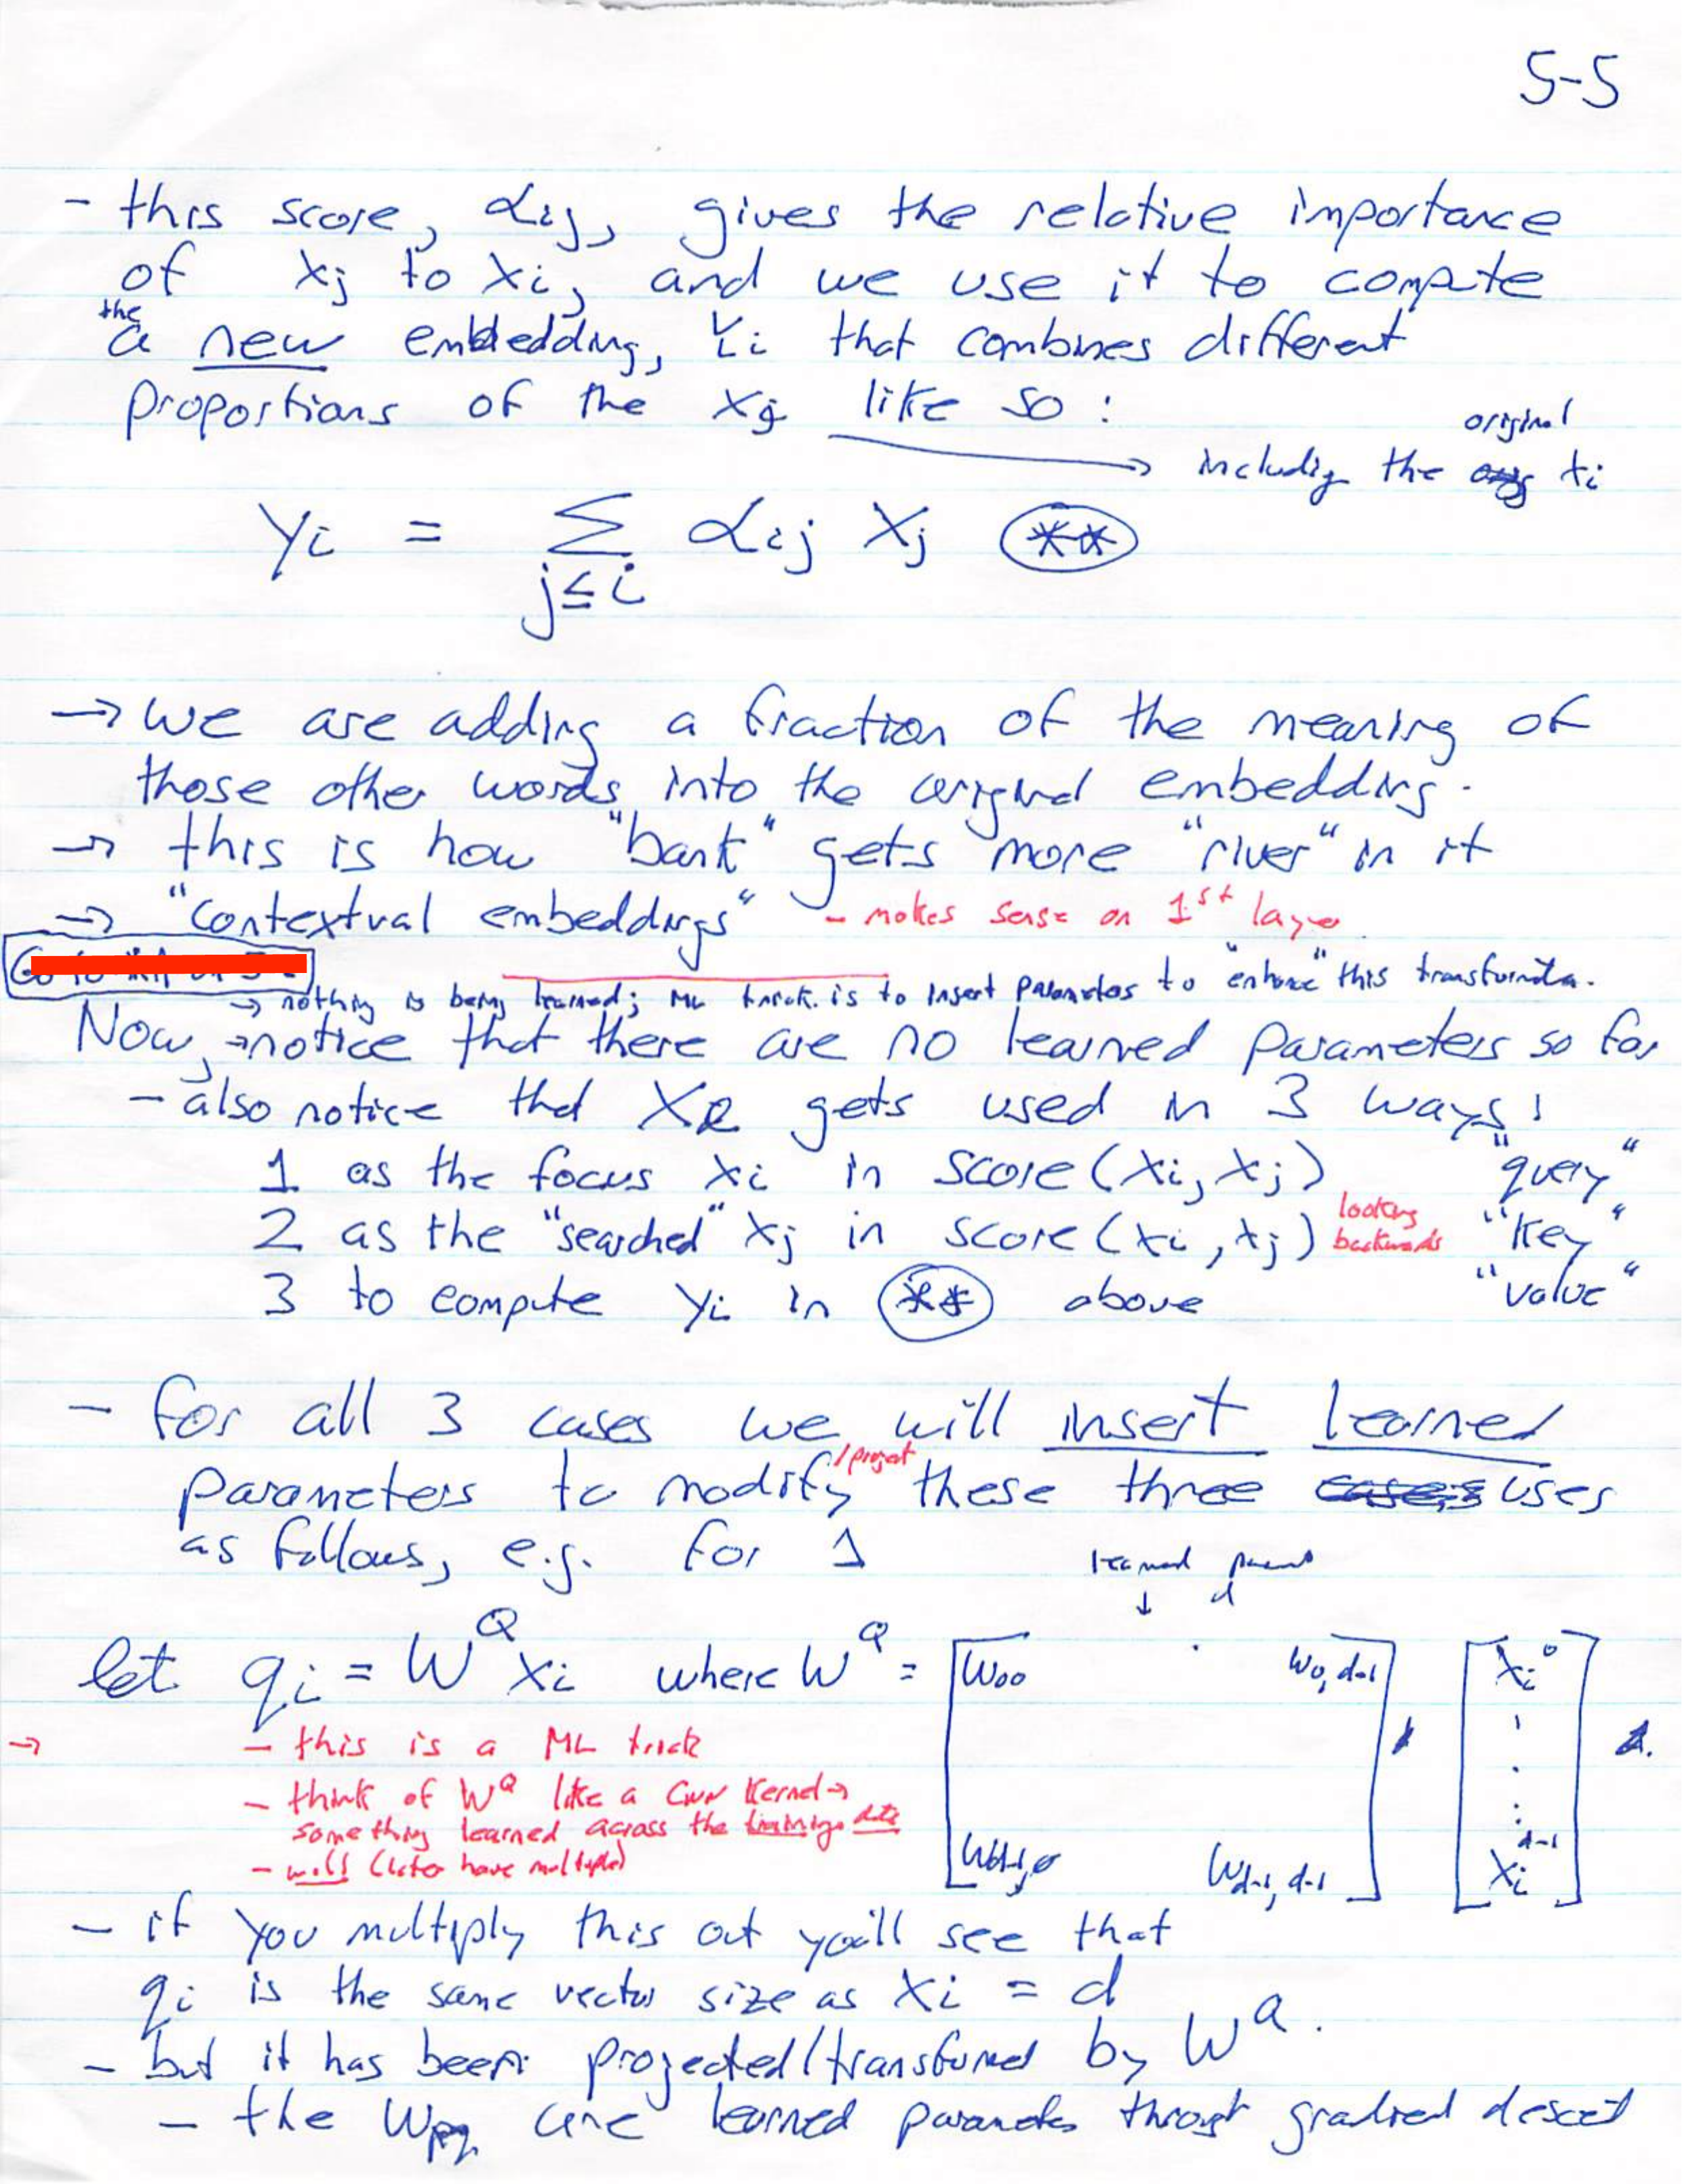 5-5
- this score, αij, gives the relative importance
of xj to xi, and we use it to compute
the
a new embedding, Yi that combines different
proportions of the xj like so :
original
→ including the xi
yi = Σ αij xj **
j≤i
→ we are adding a fraction of the meaning of
those other words into the original embedding.
→ this is how "bank" gets more "river" in it
→ "contextual embeddings" - makes sense on 1st layer
→ nothing is being learned; ML trick is to insert parameters to "enhance" this
Now, notice that there are no learned parameters so far
- also notice that X gets used in 3 ways:
1 as the focus xi in score(xi, xj) "query"
2 as the "searched" xj in score(xi, xj) looking backwards "key"
3 to compute yi in ** above "value"
- for all 3 cases we will insert learned
/project
parameters to modify these three cases uses
as follows, e.g. for 1
learned params
↓
let qi = W^Q xi where W^Q = [W00 W0,d-1 Wd-1,0 Wd-1,d-1] [xi^0 xi^d-1]
→ - this is a ML trick
- think of W^Q like a CNN kernel →
something learned across the training data
- will (later have multiple)
- if you multiply this out you'll see that
qi is the same vector size as xi = d
- but it has been projected/transformed by W^Q.
- the Wpq are learned parameters through gradient descent